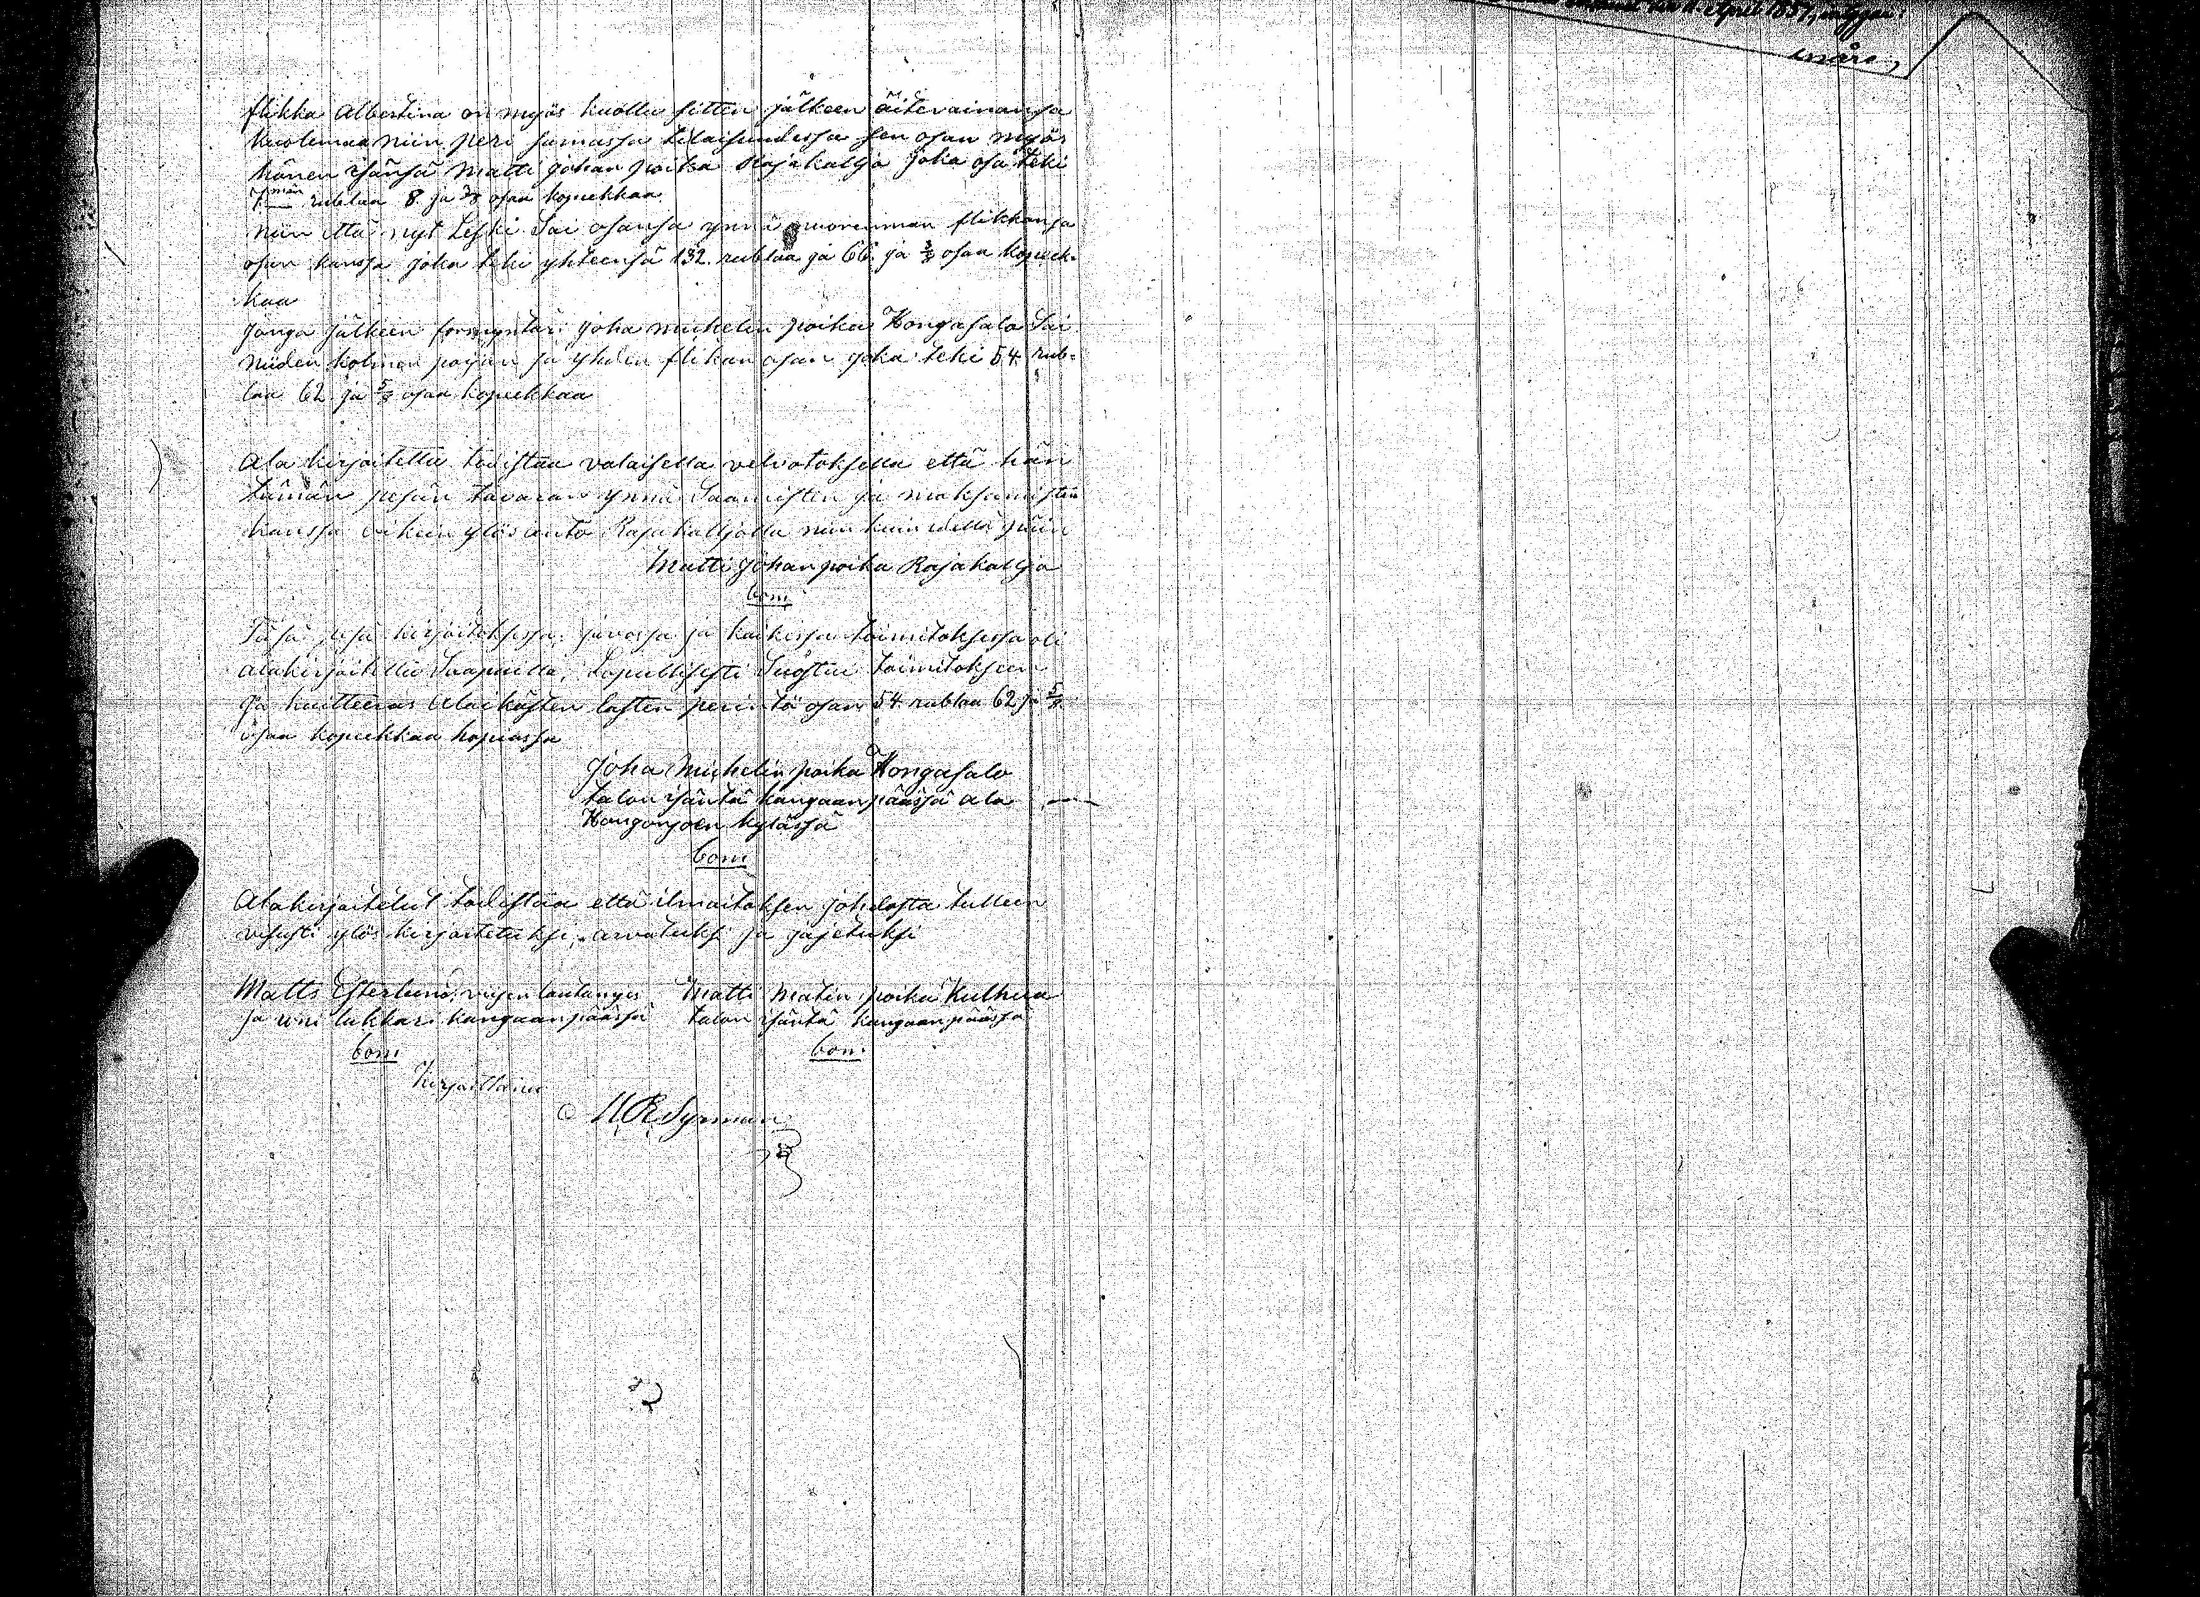 April 1857,
flikka Albertina on myös kuollu sitten jälkeen äitevainansa
kuoleman niin peri samassa tilaisuudessa sen osan myös
hänen isänsä Matti Johan poika Rajakalljo joka osa teki
7män rublaa 8 ja 3/8 osaa kopeekkaa
niin että nyt Leski Sai osansa ynnä nuoremman flikkansa
osan kanssa joka teki yhteensä 132 rublaa ja 66 ja 3/8 osaa kopeek-
kaa
Jonga jälkeen formyntäri Joha Mickelin poika Hongasalo Sai
niiden kolmen pojan ja yhden flikan osan joka teki 54 rub-
laa 62 ja 5/8 osaa kopeekkaa
Ala kirjoitettu todistaa valaisella velvotoksella että hän
tämän pesän tavaran ynnä Saamisten ja maksamisten
kanssa oikein ylös anto Rajakalljolla niin kuin edellä
Matti Johan poika Rajakalljo
bom.
Täsä pesä kirjoitoksessa, jaossa ja kaikissa toimitoksessa oli
alakirjoitettu Saapuilla, Lopullisesti Suostuu toimitokseen
ja kuitteeraa Alaikästen lasten perintö osan 54 rublaa 62 ja 5/8
osaa kopeekkaa hopiassa
Joha Mickelin poika Hongasalo
talon isäntä kangaanpäässä ala
Hongonjoen kylässä
bom.
Alakirjoitetut todistaa että ilmoitoksen johdosta tulleen
visusti ylös kirjoitetuksi, arvatuksi ja jajetuksi
Matts Esterlund, lautanges Matti Matin poika Kulhua
ja lukkari kangaanpäässä talon isäntä kangaanpäässä
bom. bom.
Kirjoittanu
Syrman